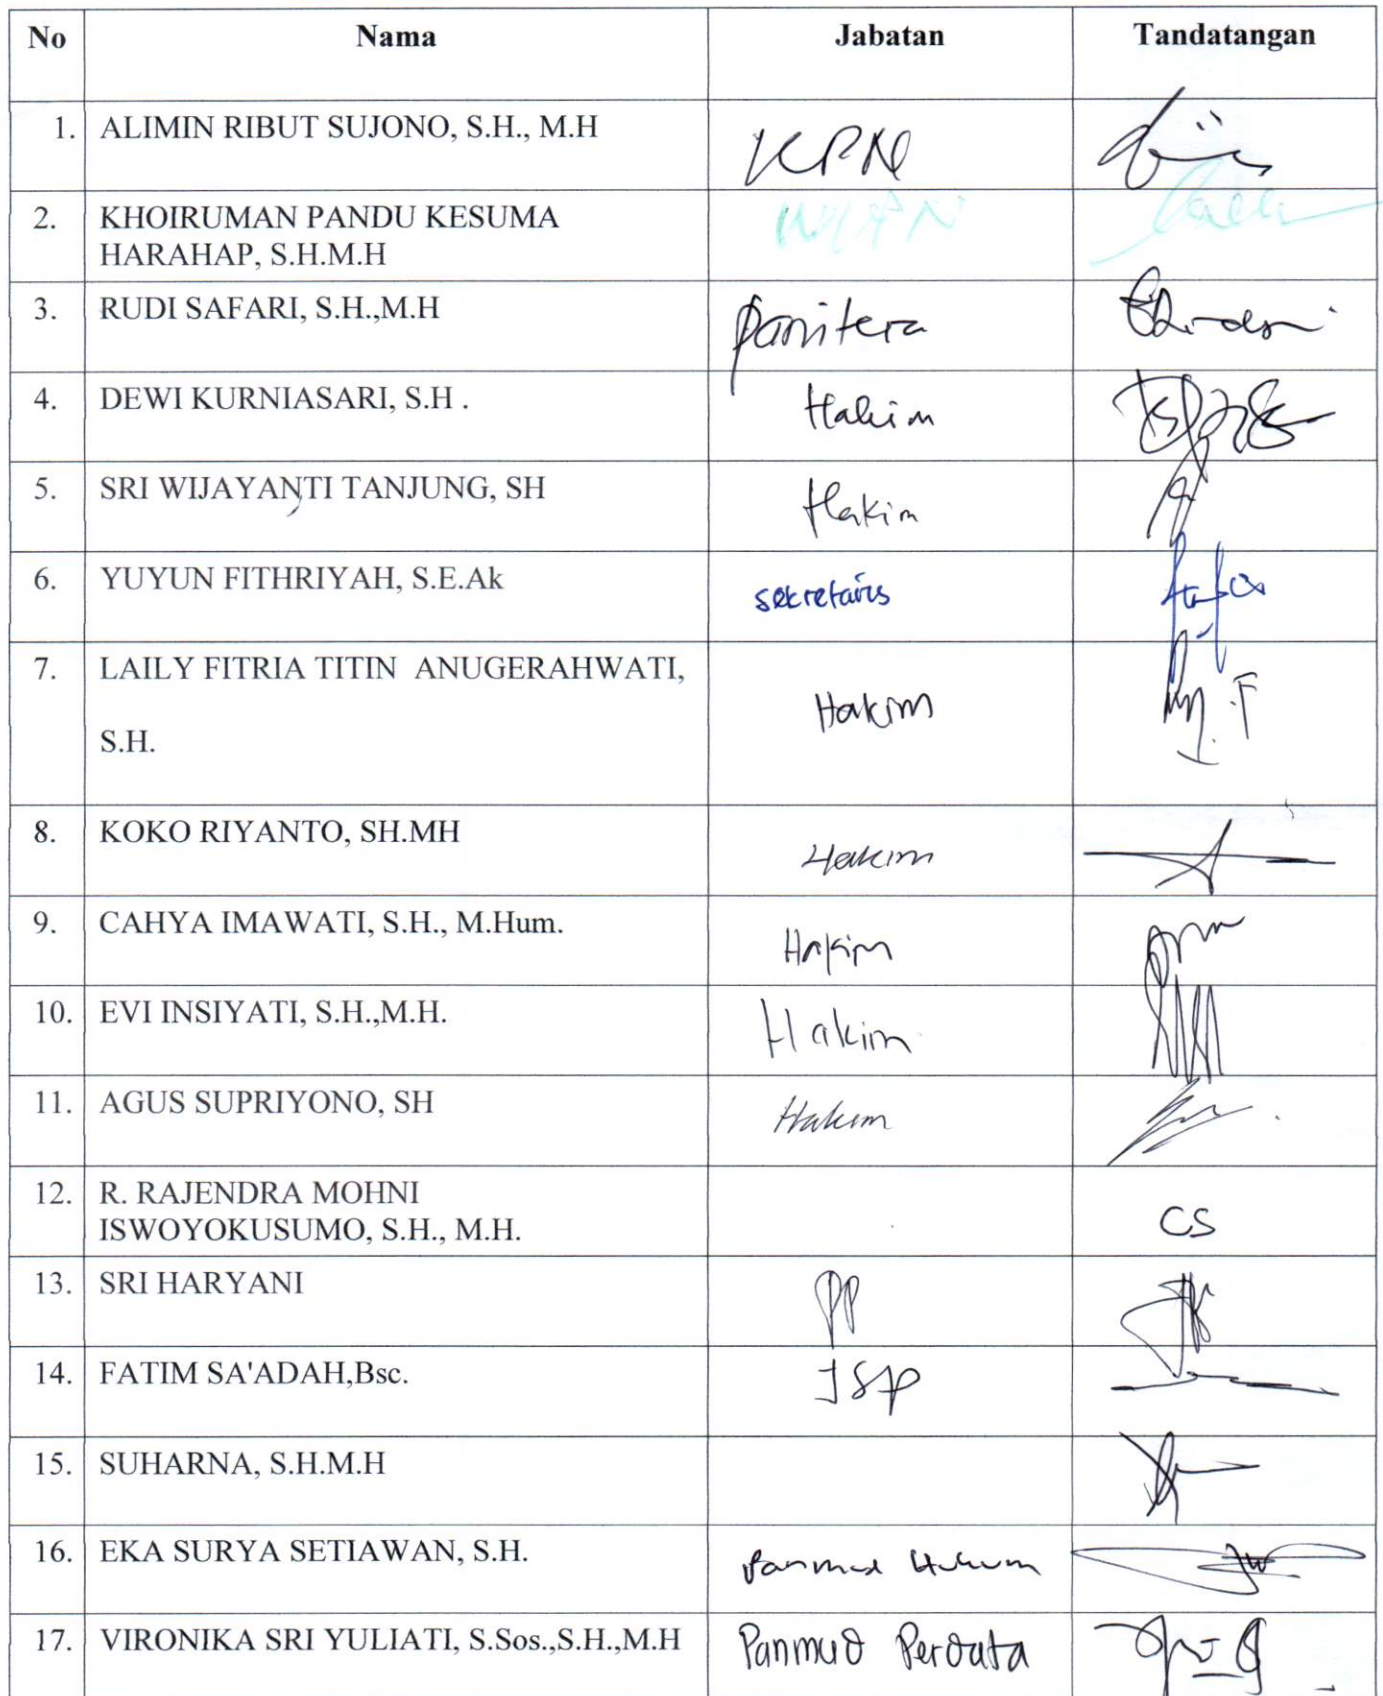 No Nama Jabatan Tandatangan
1. ALIMIN RIBUT SUJONO, S.H., M.H KPN
2. KHOIRUMAN PANDU KESUMA
HARAHAP, S.H.M.H
3. RUDI SAFARI, S.H.,M.H Panitera
4. DEWI KURNIASARI, S.H . Hakim
5. SRI WIJAYANTI TANJUNG, SH Hakim
6. YUYUN FITHRIYAH, S.E.Ak sekretaris
7. LAILY FITRIA TITIN ANUGERAHWATI,
S.H.
Hakim
8. KOKO RIYANTO, SH.MH Hakim
9. CAHYA IMAWATI, S.H., M.Hum. Hakim
10. EVI INSIYATI, S.H.,M.H. Hakim
11. AGUS SUPRIYONO, SH Hakim
12. R. RAJENDRA MOHNI
ISWOYOKUSUMO, S.H., M.H. CS
13. SRI HARYANI PP
14. FATIM SA'ADAH,Bsc. JSP
15. SUHARNA, S.H.M.H
16. EKA SURYA SETIAWAN, S.H. Panmud Hukum
17. VIRONIKA SRI YULIATI, S.Sos.,S.H.,M.H Panmud Perdata